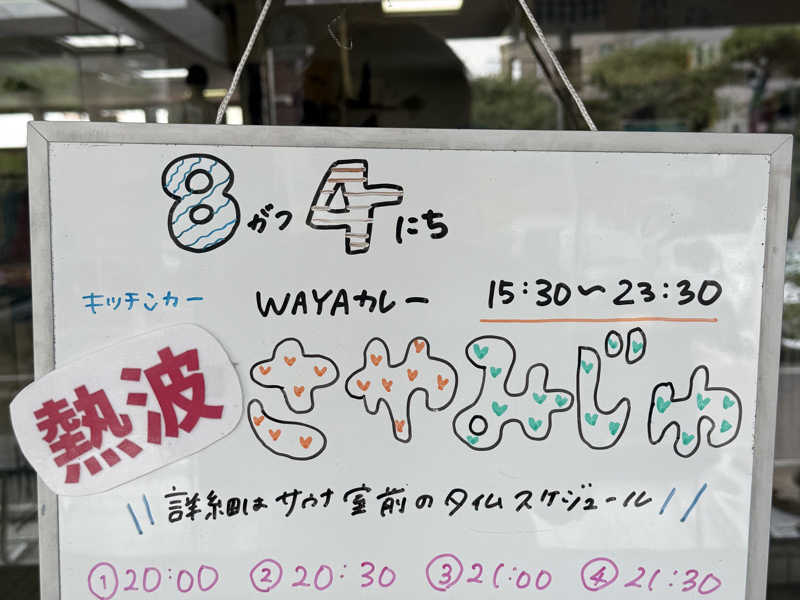 8がつ4にち
キッチンカー WAYAカレー 15:30〜23:30
熱波 さやみじゅ
\\ 詳細はサウナ室前のタイムスケジュール //
①20:00 ②20:30 ③21:00 ④21:30